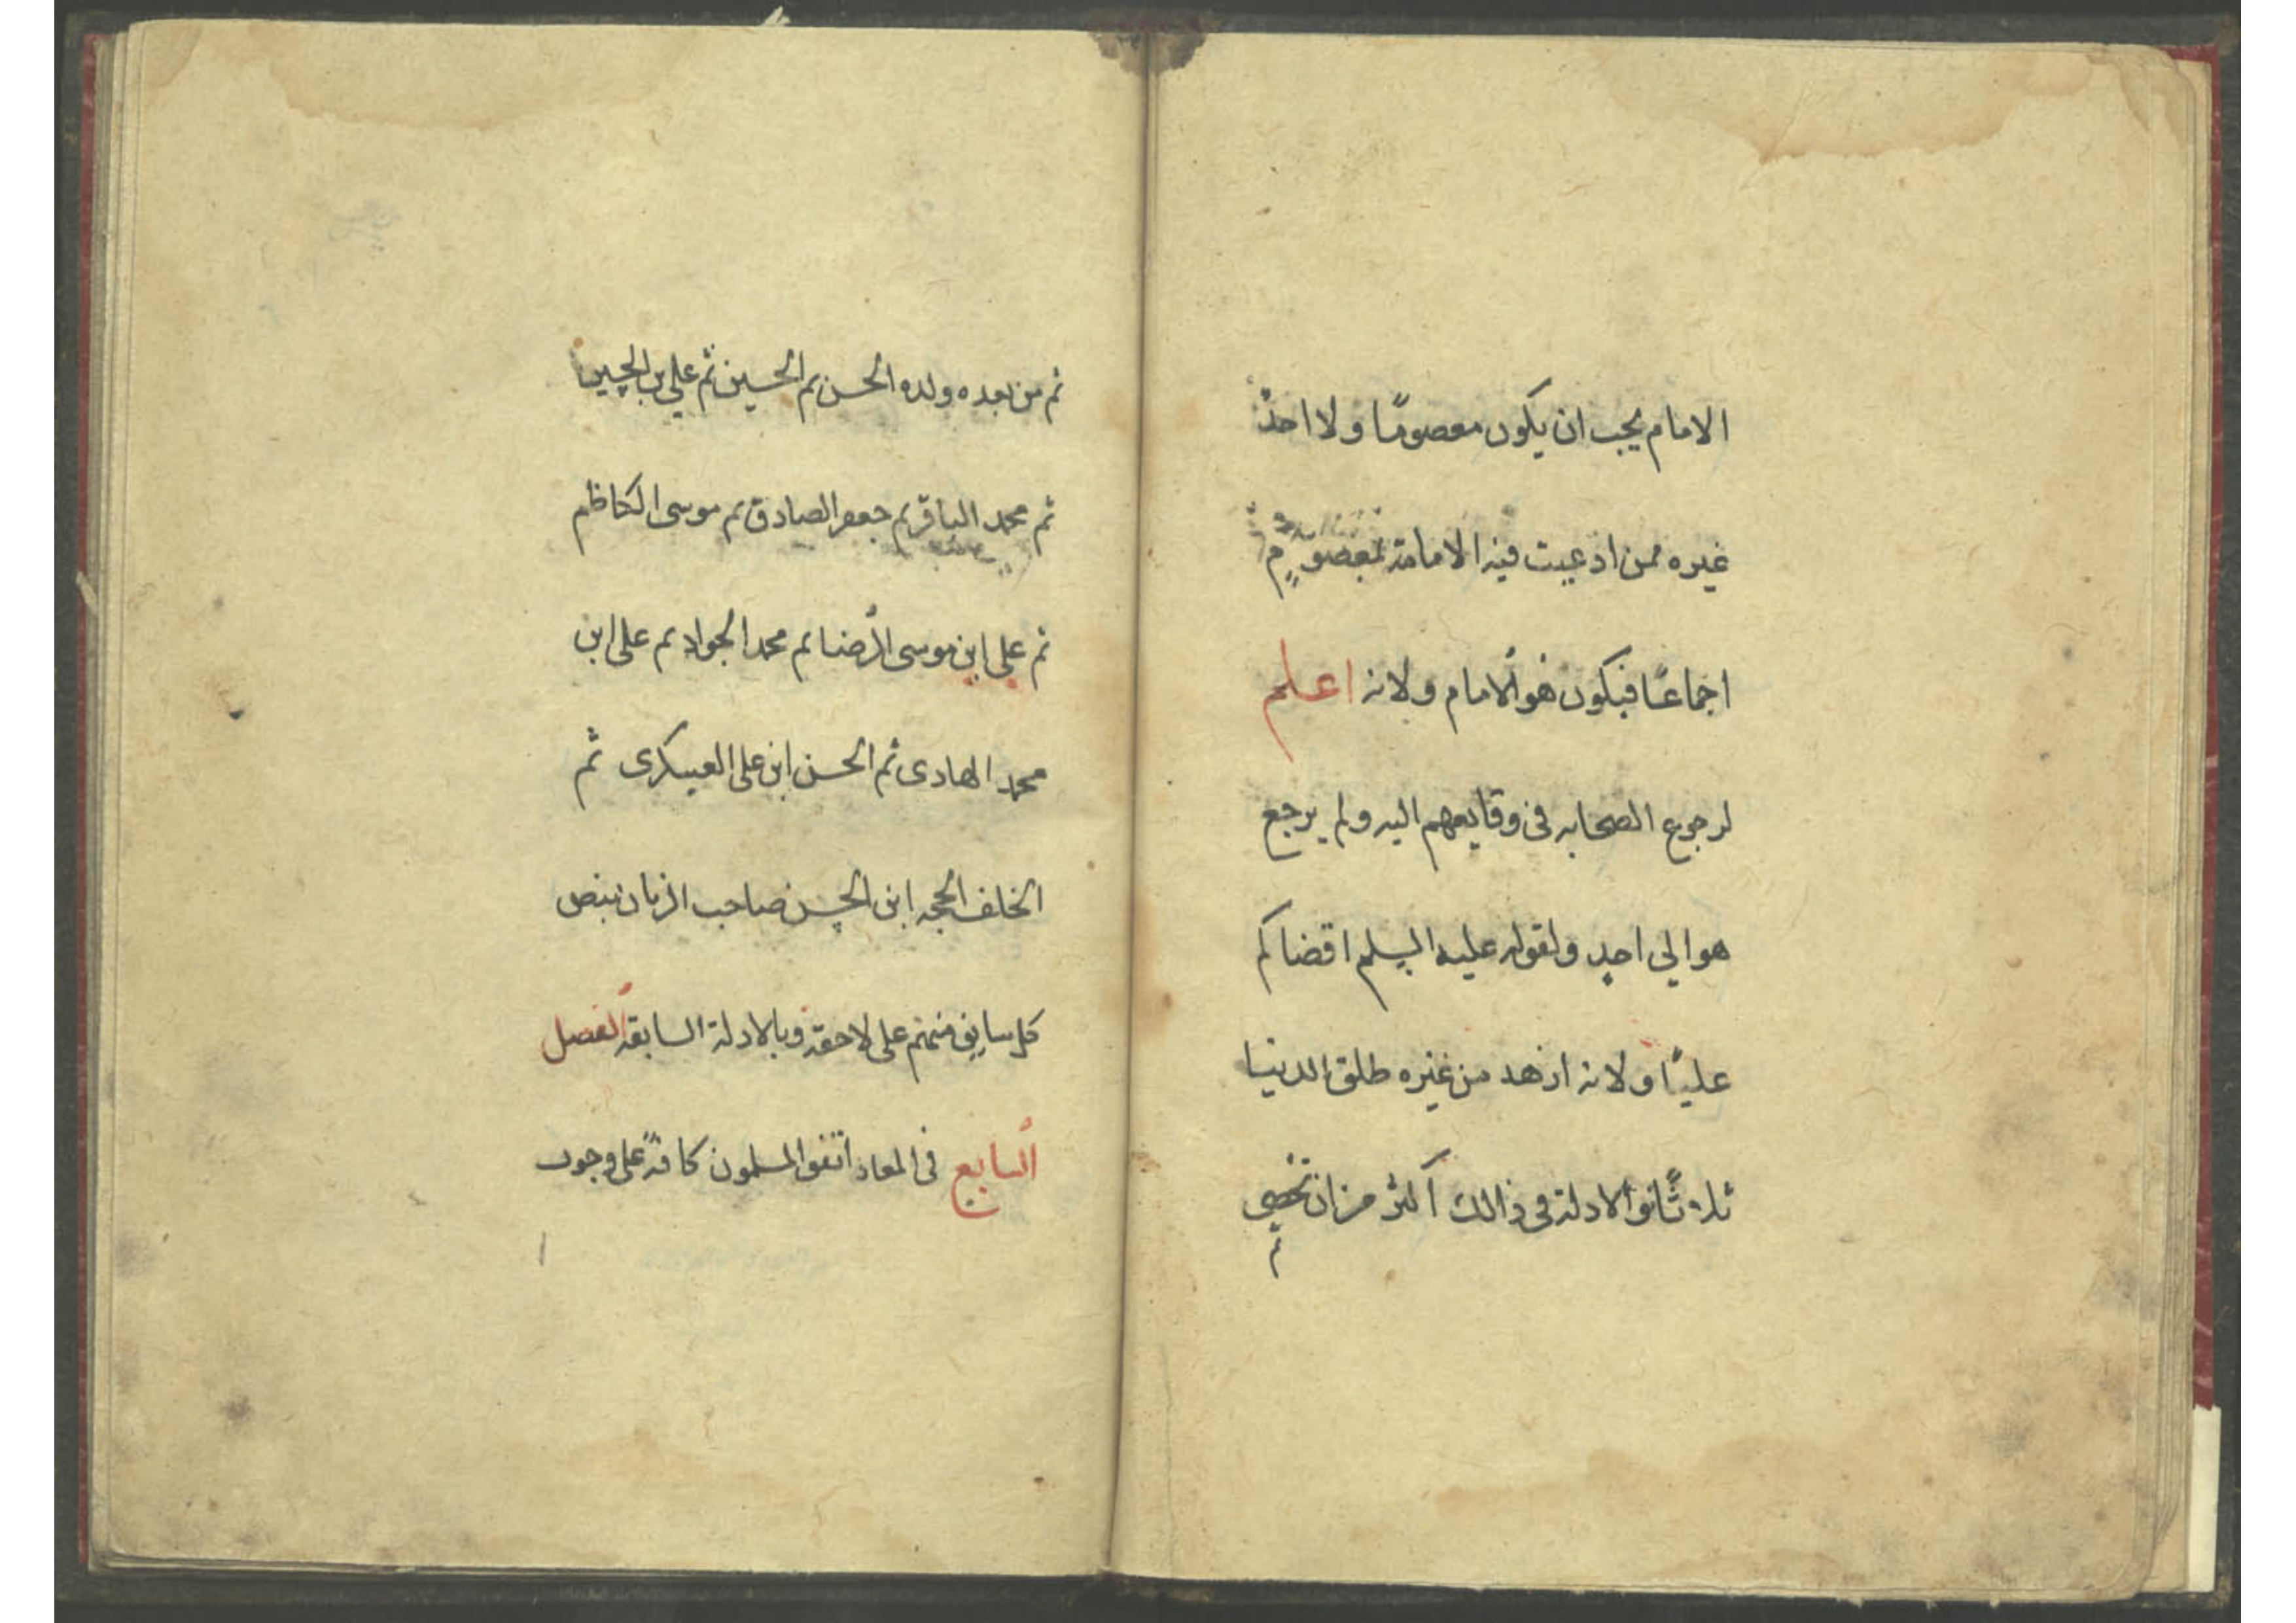 الامام يجب ان يكون معصومًا ولا احدٌ
غيره ممن ادعيت فيه الامامة بمعصومٍ
اجماعًا فيكون هو الامام ولانه اعلم
لرجوع الصحابه فى وقايعهم اليه ولم يرجع
هو الي احدٍ ولقوله عليه السلم اقضاكم
عليًا ولانه ازهد من غيره طلق الدنيا
ثلاثًا والادلة فى ذالك اكثر من ان تحصى
ثم
ثم من بعده ولده الحسن ثم الحسين ثم علي بن الحسين
ثم محمد الباقر ثم جعفر الصادق ثم موسى الكاظم
ثم على ابن موسى الرضا ثم محمد الجواد ثم على ابن
محمد الهادى ثم الحسن ابن على العسكرى ثم
الخلف الحجه ابن الحسن صاحب الزمان بنص
كل سابق منهم على لاحقه وبالادلة السابقة الفصل
السابع فى المعاد اتفق المسلمون كافةً على وجوب